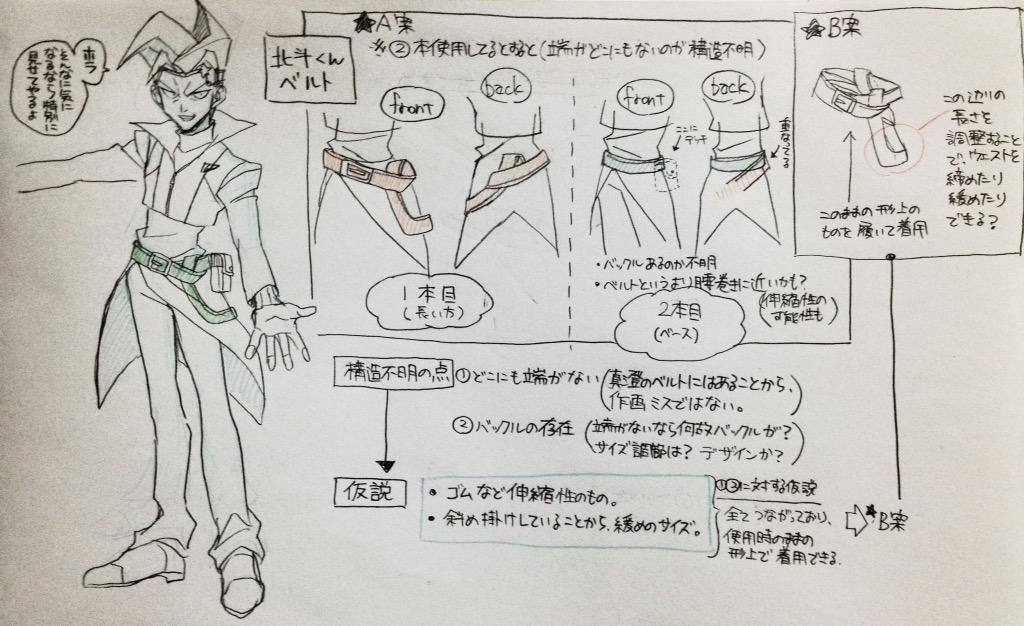 ホラ
そんなに気に
なるなら特別に
見せてやるよ
北斗くん
ベルト
★A案
※②本使用してるとすると(端がどこにもないのが構造不明)
front
back
front
back
ここに
デッキ
重なってる
1本目
(長い方)
・バックルあるのか不明
・ベルトというより腰巻きに近いかも?
(伸縮性の
可能性も)
2本目
(ベース)
★B案
この辺りの
長さを
調整すること
で、ウエストを
締めたり
緩めたり
できる?
このままの形上の
ものを履いて着用
構造不明の点
①どこにも端がない(真澄のベルトにはあることから、
作画ミスではない。)
②バックルの存在(端がないなら何故バックルが?
サイズ調節は?デザインか?)
仮説
・ゴムなど伸縮性のもの。
・斜め掛けしていることから、緩めのサイズ。
①③に対する仮説
全てつながっており、
使用時のままの
形上で着用できる.
⇨★B案